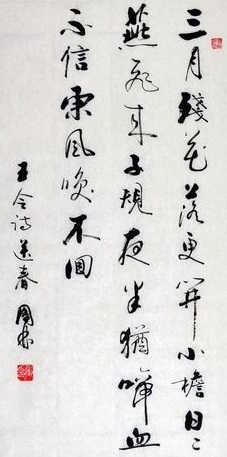 三月殘花落更開小檐日々
燕飛來子規夜半猶啼血
不信東風喚不回
王令詩送春